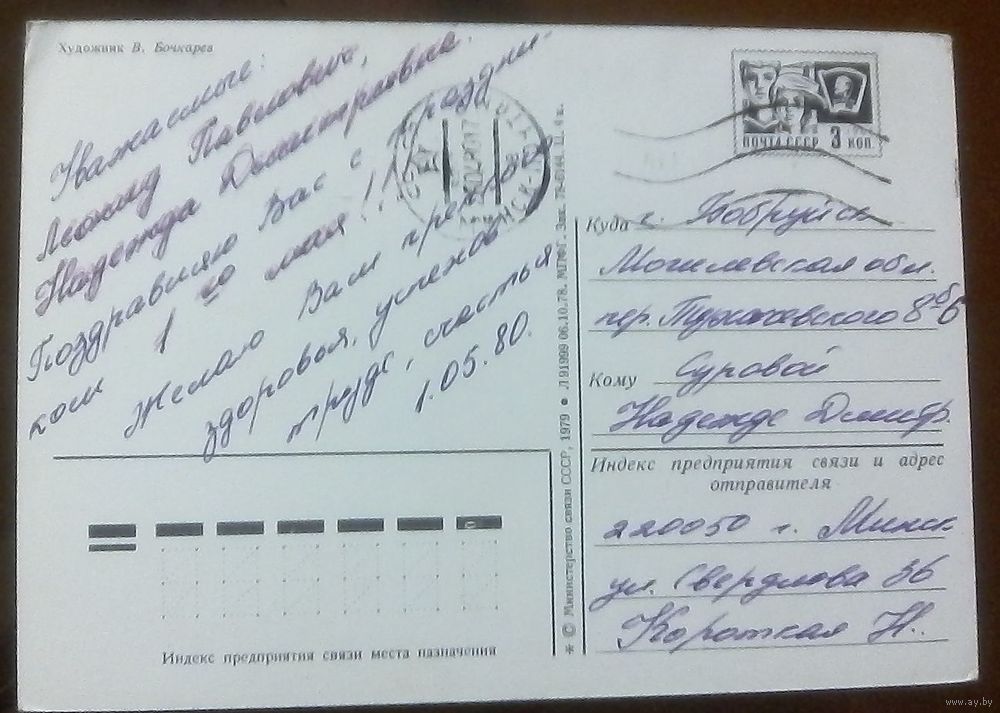 Художник В. Бочкарев
Уважаемые:
Леонид Павлович,
Надежда Дмитриевна.
Поздравляю Вас с праздни-
ком 1 го мая!!!
Желаю Вам
здоровья, успехов
труде, счастья
1.05.80.
ПОЧТА СССР 3 КОП.
Куда г. Бобруйск
Могилевская обл.
пер. 8
Кому Суровой
Надежде Дмитр.
Индекс предприятия связи и адрес
отправителя
220050 г. Минск
ул. Свердлова 36
Короткая Н.
Индекс предприятия связи места назначения
* © Министерство связи СССР, 1979 ● Л 91999 06.10.78. МПФГ. Зак. Ц. 4 к.
www.ay.by